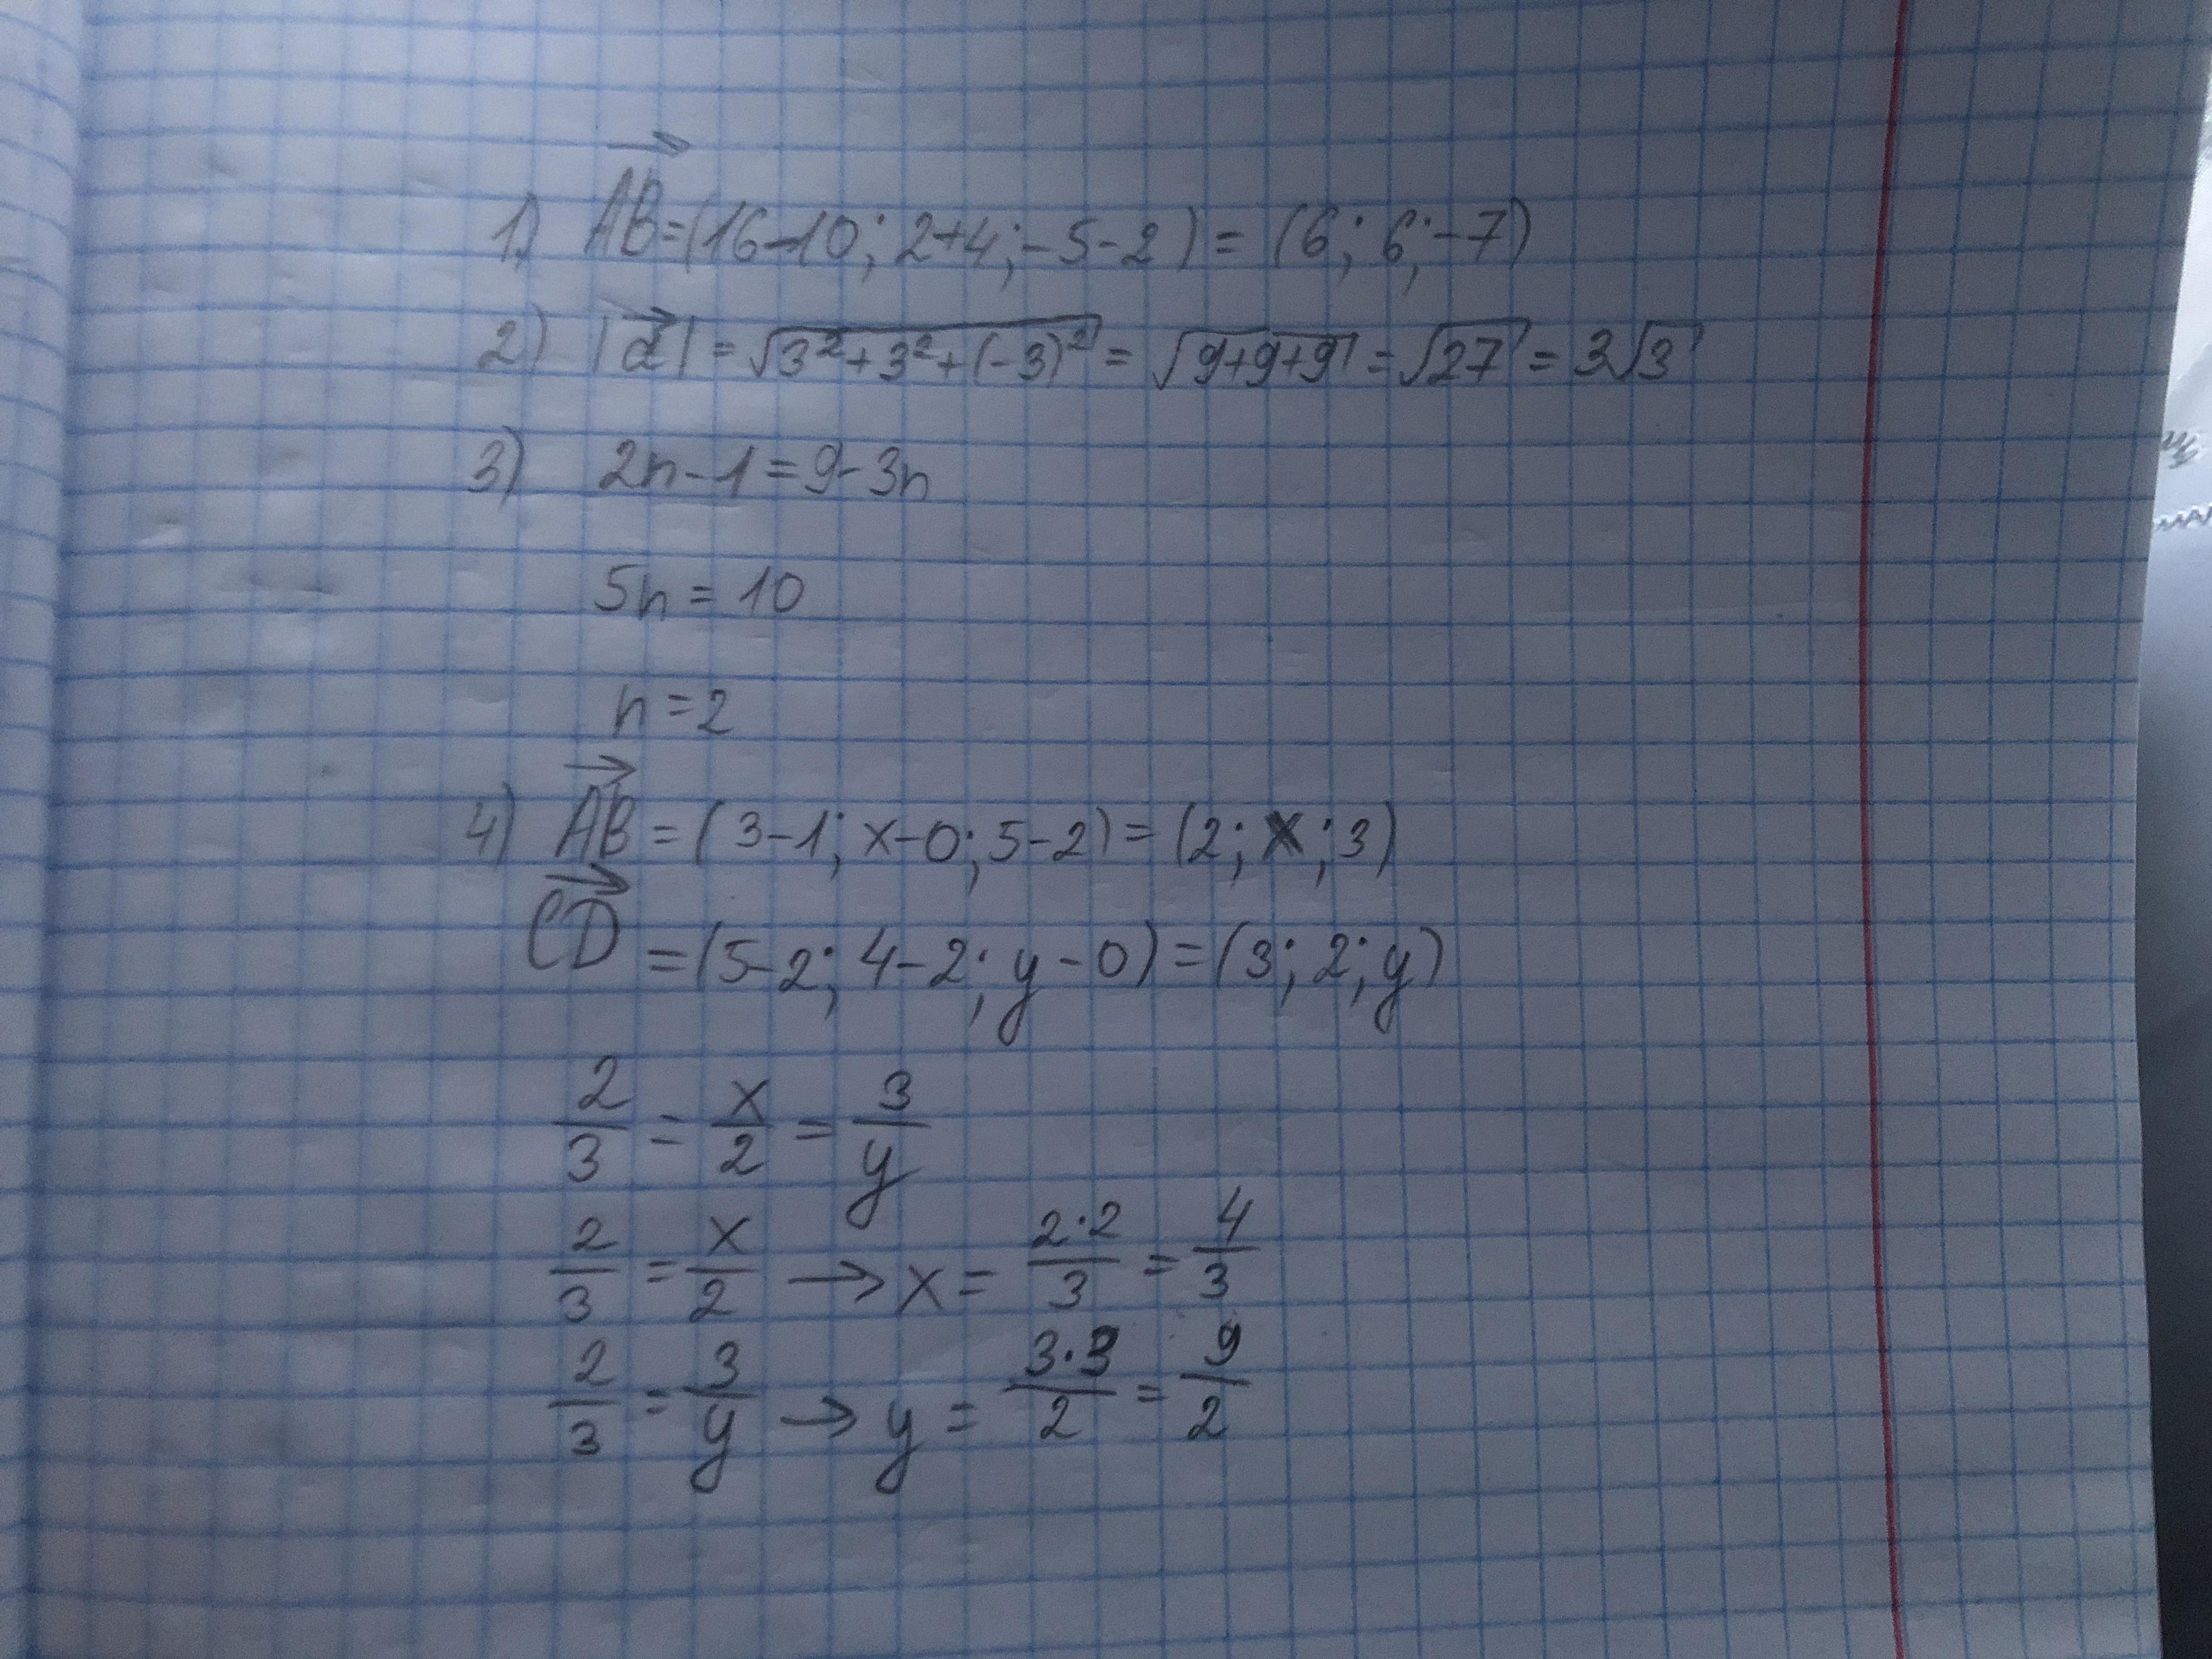 1) AB=(16-10; 2+4; -5-2) = (6; 6; -7)
2) |a| = √3²+3²+(-3)² = √9+9+9 = √27 = 3√3
3) 2n-1=9-3n
5n = 10
n = 2
4) AB = (3-1; x-0; 5-2) = (2; x; 3)
CD = (5-2; 4-2; y-0) = (3; 2; y)
2/3 = x/2 = 3/y
2/3 = x/2 → x = 2·2/3 = 4/3
2/3 = 3/y → y = 3·3/2 = 9/2